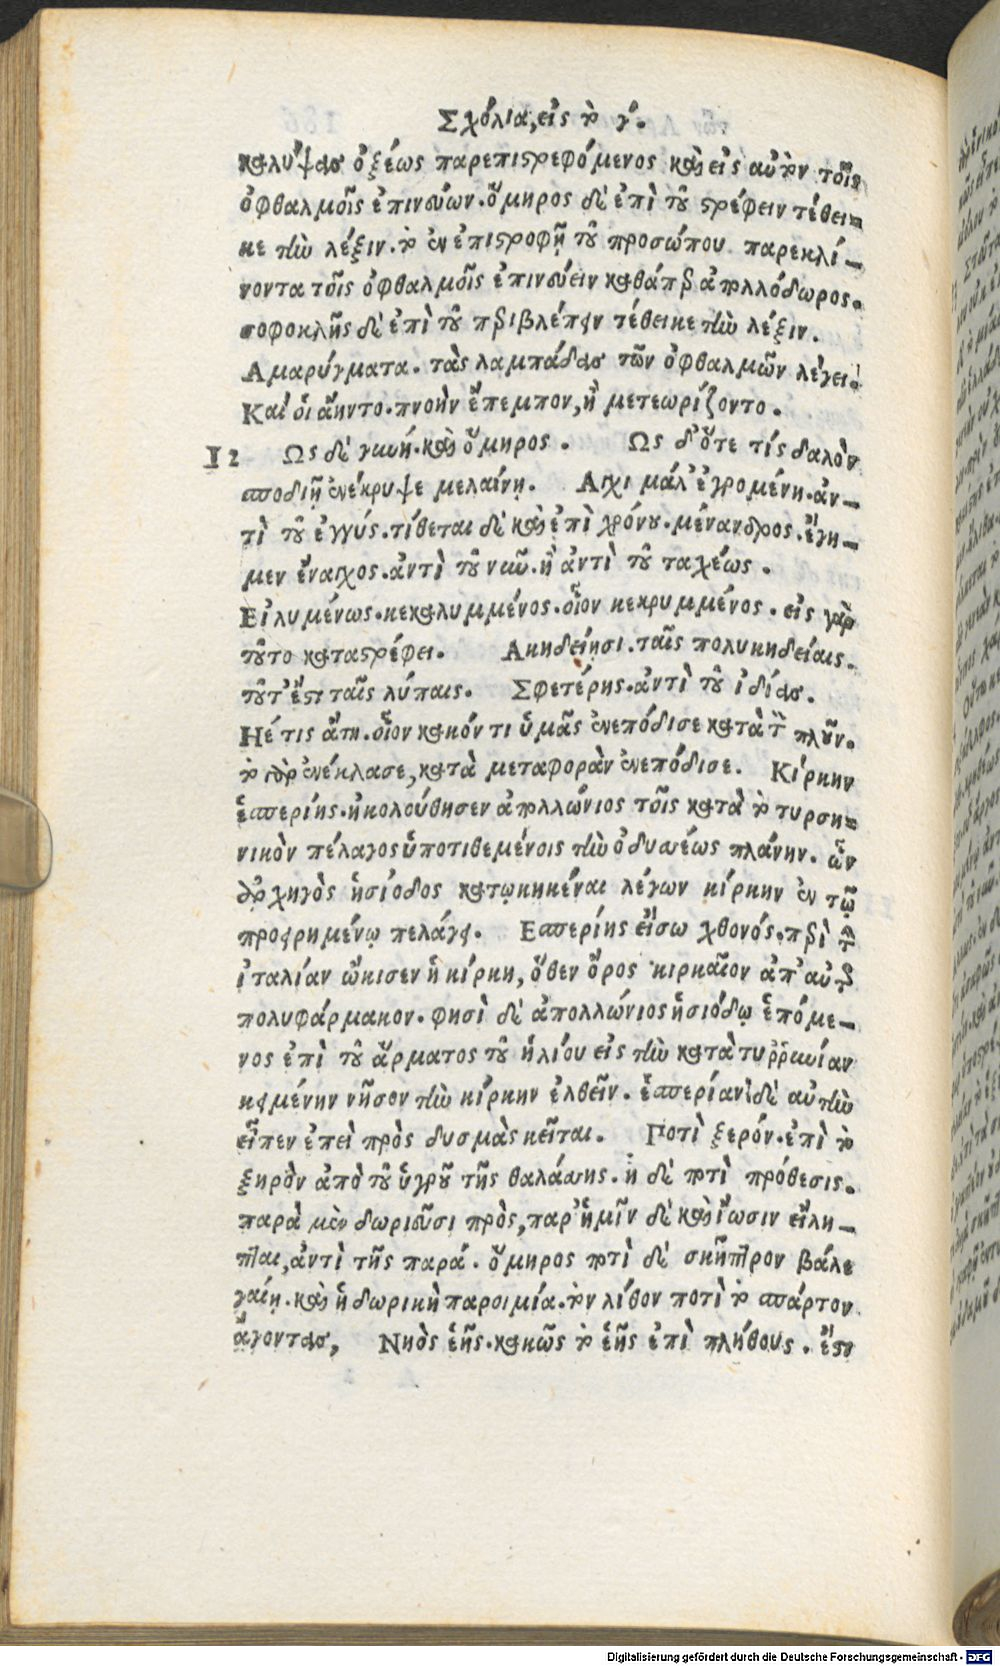 Σχόλια, εἰς τὸ γ´.
καλύψας ὀξέως παρεπιστρεφόμενος καὶ εἰς αὐτὸν τοῖς
ὀφθαλμοῖς ἐπινεύων. ὅμηρος δὲ ἐπὶ τοῦ στρέφειν τέθει=
κε τὴν λέξιν. τὸ ἐν ἐπιστροφῇ τοῦ προσώπου παρεκλί-
νοντα τοῖς ὀφθαλμοῖς ἐπινεύειν καθάπερ ἀπολλόδωρος.
σοφοκλῆς δὲ ἐπὶ τοῦ περιβλέπειν τέθεικε τὴν λέξιν.
Αμαρύγματα. τὰς λαμπάδας τῶν ὀφθαλμῶν λέγει.
Καί ὁι ἄηντο. πνοὴν ἔπεμπον, ἢ μετεωρίζοντο.
12 Ως δὲ γυνή. καὶ ὅμηρος. Ως δ' ὅτε τίς δαλὸν
σποδιῇ ἐνέκρυψε μελαίνῃ. Αιχι μάλ' ἐγρομένη. ἀν-
τὶ τοῦ ἐγγύς. τίθεται δὲ καὶ ἐπὶ χρόνου. μένανδρος. ἔγη-
μεν ἔναιχος. ἀντὶ τοῦ νῦν. ἢ ἀντὶ τοῦ ταχέως.
Εἰλυμένως. κεκαλυμμένος. οἷον κεκρυμμένος. εἰς γὰρ
τοῦτο καταστρέφει. Ακηδείῃσι. ταῖς πολυκηδείαις.
τοῦτ' ἔστι ταῖς λύπαις. Σφετέρης. ἀντὶ τοῦ ἰδίας.
Ηέ τις ἄτη. οἷον κακόν τι ὑμᾶς ἐνεπόδισε κατὰ τὸν πλοῦν.
τὸ γὰρ ἐνέκλασε, κατὰ μεταφορὰν ἐνεπόδισε. Κίρκην
ἑσπερίης. ἠκολούθησεν ἀπολλώνιος τοῖς κατὰ τὸ τυρση=
νικὸν πέλαγος ὑποτιθεμένοις τὴν ὀδυσσέως πλάνην. ὧν
ἀρχηγὸς ἡσίοδος κατῳκηκέναι λέγων κίρκην ἐν τῷ
προειρημένῳ πελάγει. Εσπερίης εἴσω χθονός. περὶ τὴν
ἰταλίαν ᾤκισεν ἡ κίρκη, ὅθεν ὄρος κιρκαῖον ἀπ' αὐτῆς
πολυφάρμακον. φησὶ δὲ ἀπολλώνιος ἡσιόδῳ ἑπόμε-
νος ἐπὶ τοῦ ἅρματος τοῦ ἡλίου εἰς τὴν κατὰ τυῤῥηνίαν
κειμένην νῆσον τὴν κίρκην ἐλθεῖν. ἑσπερίαν δὲ αὐτὴν
εἶπεν ἐπεὶ πρὸς δυσμὰς κεῖται. Ποτὶ ξερόν. ἐπὶ τὸ
ξηρὸν ἀπὸ τοῦ ὑγροῦ τῆς θαλάσσης. ἡ δὲ ποτὶ πρόθεσις.
παρὰ μὲν δωριεῦσι πρὸς, παρ' ἡμῖν δὲ καὶ ἴωσιν εἴλη-
πται, ἀντὶ τῆς παρά. ὅμηρος ποτὶ δὲ σκῆπτρον βάλε
γαίῃ. καὶ ἡ δωρικὴ παροιμία. τὸν λίθον ποτὶ τὸ σπάρτον
ἄγοντας, Νηὸς ἑῆς. κακῶς τὸ ἑῆς ἐπὶ πλήθους. ἔστι